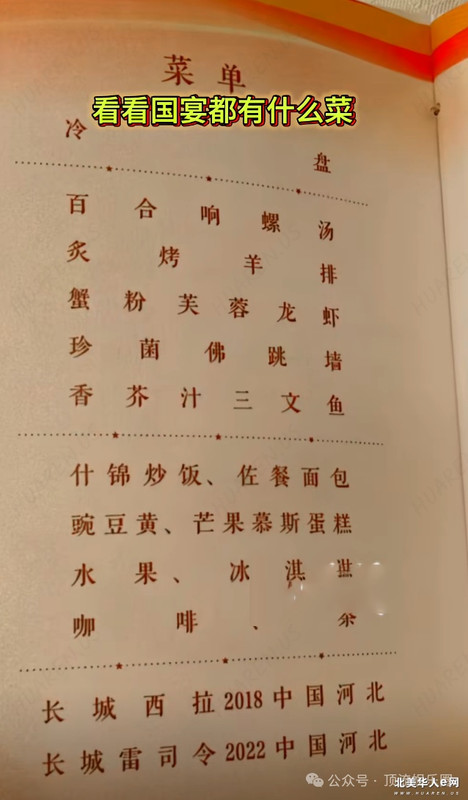 菜单
看看国宴都有什么菜
冷盘
百合响螺汤
炙烤羊排
蟹粉芙蓉龙虾
珍菌佛跳墙
香芥汁三文鱼
什锦炒饭、佐餐面包
豌豆黄、芒果慕斯蛋糕
水果、冰淇
咖啡、
长城西拉2018中国河北
长城雷司令2022中国河北
公众号·顶流娱乐
北美华人e网